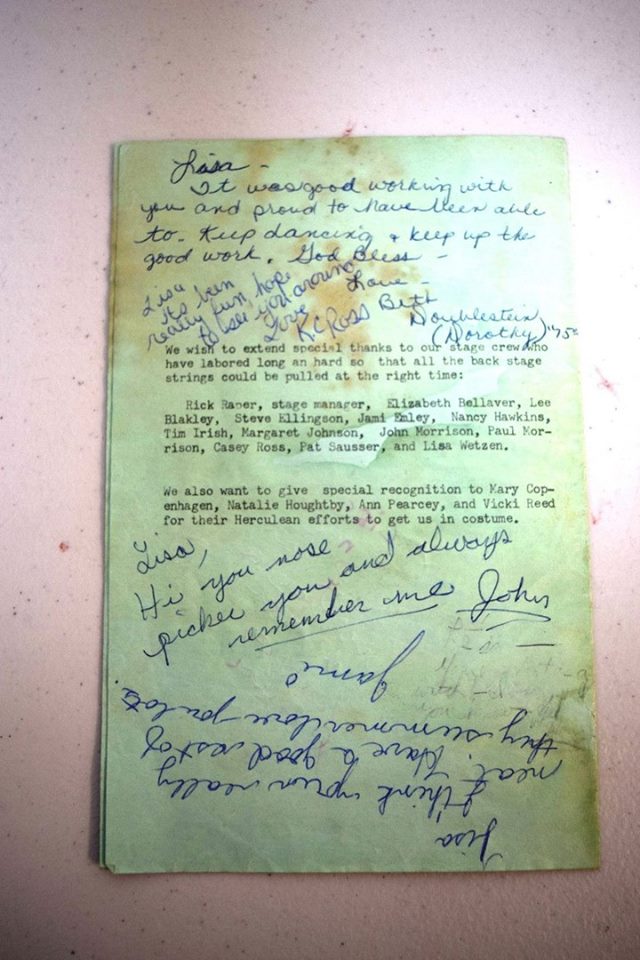 Lisa -
It was good working with
you and proud to have been able
to. Keep dancing & keep up the
good work. God Bless -
Love -
Beth
Doublestein
(Dorothy) '75
Lisa
its been
really fun, hope
to see you around
Love
K.C Ross
We wish to extend special thanks to our stage crew who
have labored long an hard so that all the back stage
strings could be pulled at the right time:
Rick Raper, stage manager, Elizabeth Bellaver, Lee
Blakley, Steve Ellingson, Jami Emley, Nancy Hawkins,
Tim Irish, Margaret Johnson, John Morrison, Paul Mor-
rison, Casey Ross, Pat Sausser, and Lisa Wetzen.
We also want to give special recognition to Mary Cop-
enhagen, Natalie Houghtby, Ann Pearcey, and Vicki Reed
for their Herculean efforts to get us in costume.
Lisa,
Hi you nose
picker you and always
remember me John
Lisa
I think your really
neat. Have a good rest of
thy summer love you lots
Jami